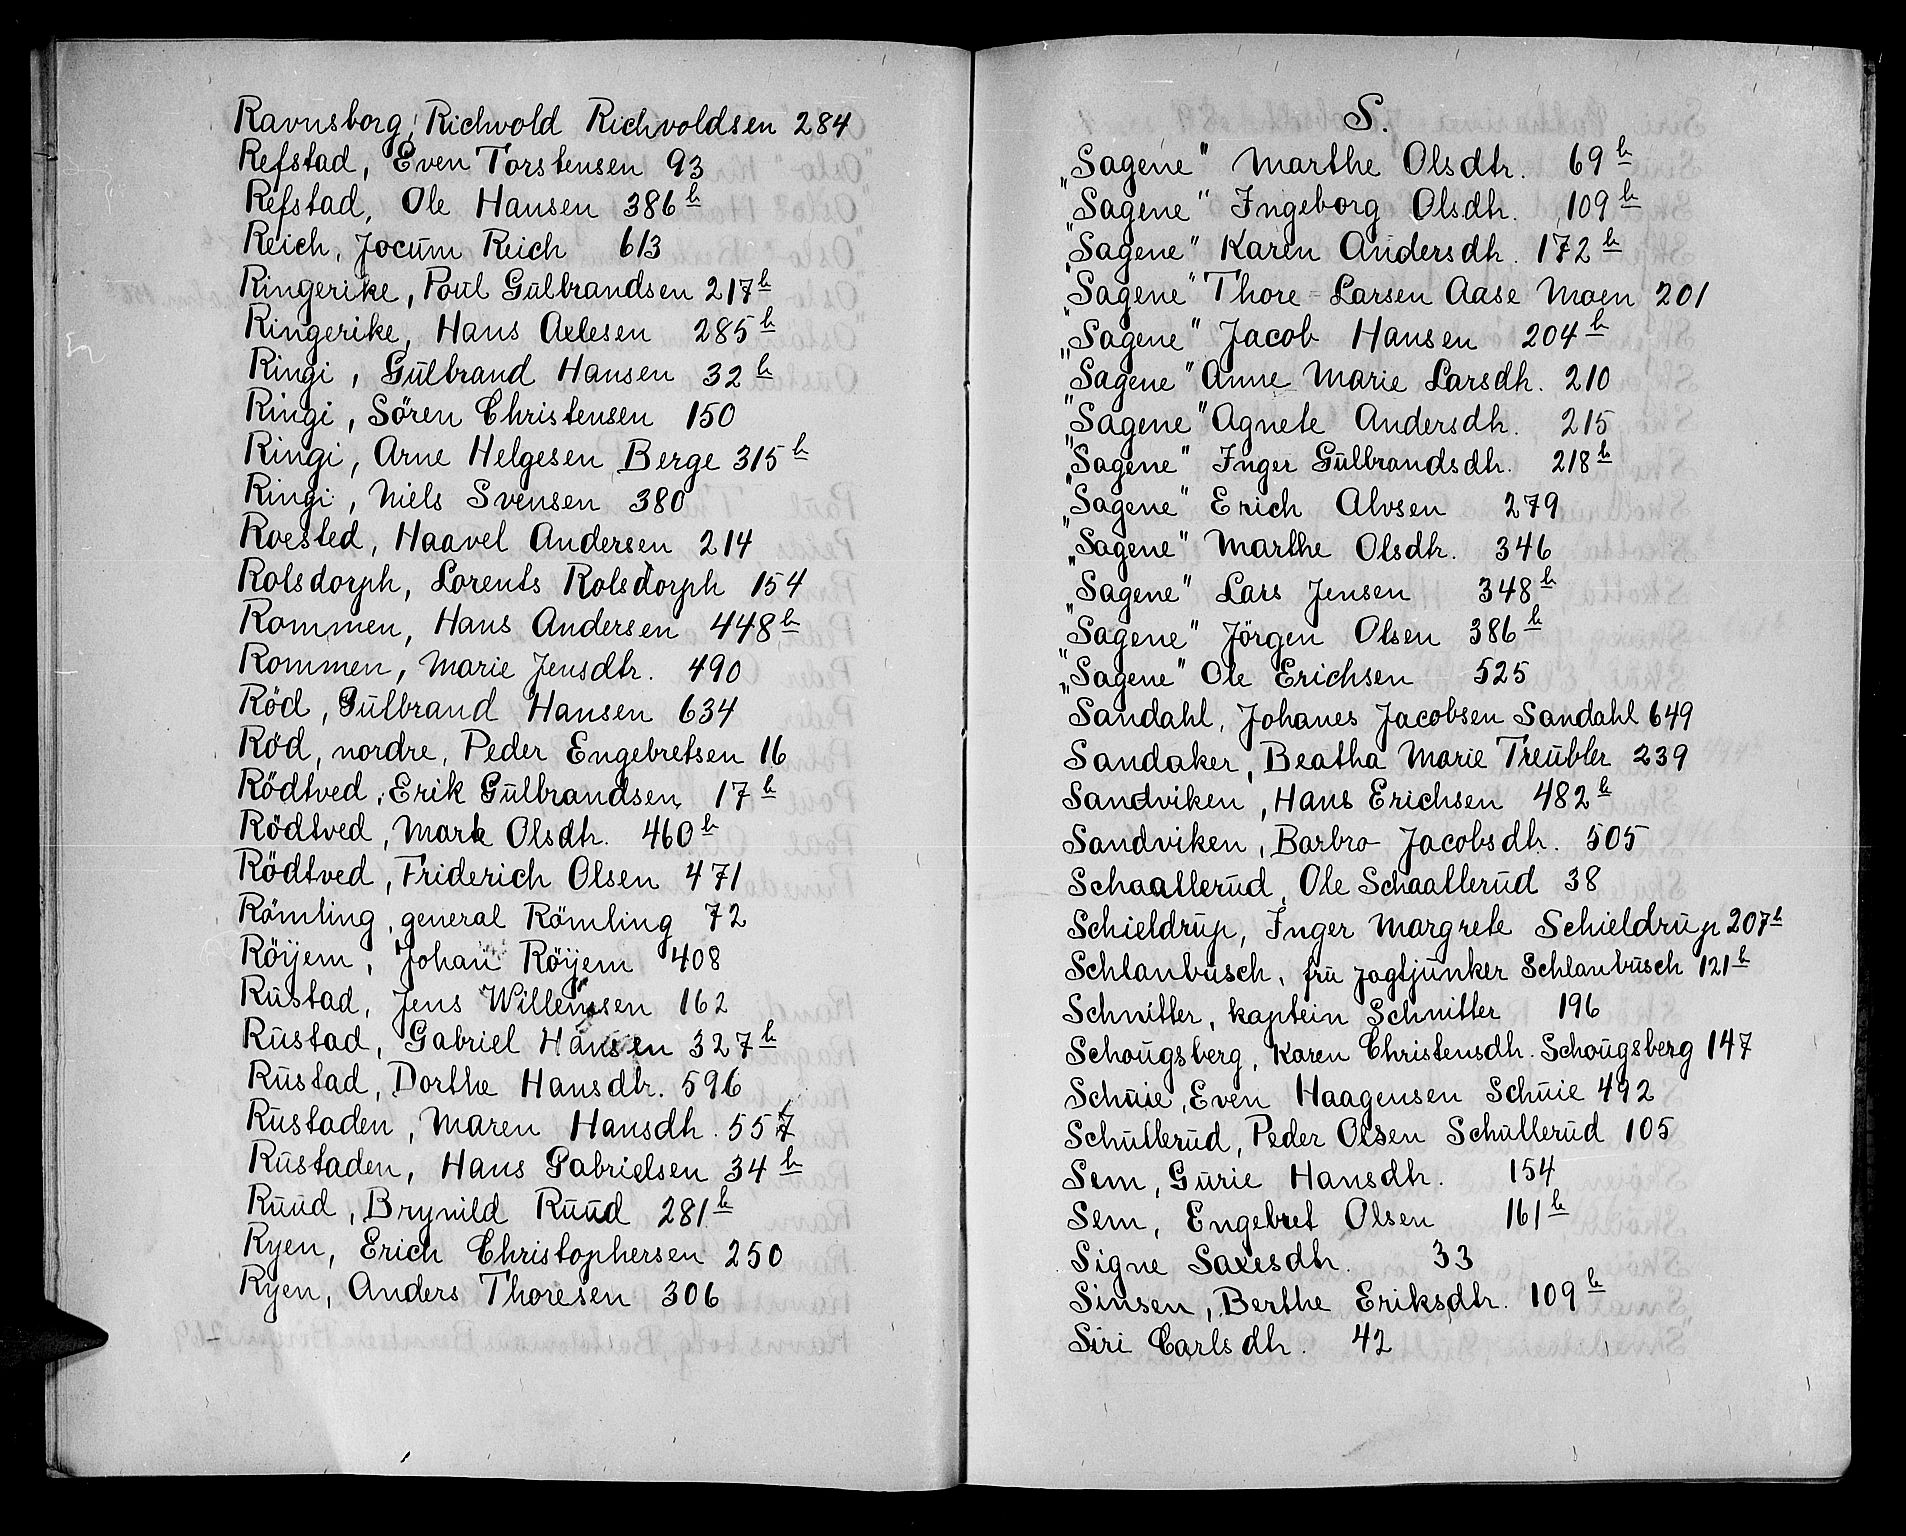 Ravnsborg, Richvold Richvoldsen 284
Refstad, Even Torstensen 93
Refstad, Ole Hansen 386b
Reich, Jocum Reich 613
Ringerike, Poul Gülbrandsen 217b
Ringerike, Hans Axlesen 285b
Ringi, Gülbrand Hansen 32b
Ringi, Sören Christensen 150
Ringi, Arne Helgesen Berge 315b
Ringi, Niels Svensen 380
Roested, Haavel Andersen 214
Rolsdorph, Lorents Rolsdorph 154
Rommen, Hans Andersen 448b
Rommen, Marie Jensdtr. 490
Röd, Gülbrand Hansen 634
Röd, nordre, Peder Engebretsen 16
Rödtved, Erik Gülbrandsen 17b
Rödtved, Marte Olsdtr. 460b
Rödtved, Friderich Olsen 471
Römling, general Römling 72
Röijem, Johan Röijem 408
Rüstad, Jens Willemsen 162
Rüstad, Gabriel Hansen 327b
Rüstad, Dorthe Hansdtr. 596
Rüstaden, Maren Hansdtr. 557
Rüstaden, Hans Gabrielsen 34b
Ruud, Brynild Ruud 281b
Ryen, Erich Christophersen 250
Ryen, Anders Thoresen 306
S.
„Sagene" Marthe Olsdtr. 69b
„Sagene" Ingeborg Olsdtr. 109b
„Sagene" Karen Andersdtr. 172b
„Sagene" Thore Larsen Aase Moen 201
„Sagene" Jacob Hansen 204b
„Sagene" Anne Marie Larsdtr. 210
„Sagene" Agnete Andersdtr. 215
„Sagene" Inger Gülbrandsdtr. 218b
„Sagene" Erich Alvsen 279
„Sagene" Marthe Olsdtr. 346
„Sagene" Lars Jensen 348b
„Sagene" Jörgen Olsen 386b
„Sagene" Ole Erichsen 525
Sandahl, Johanes Jacobsen Sandahl 649
Sandaker, Beatha Marie Treübler 239
Sandviken, Hans Erichsen 482b
Sandviken, Barbro Jacobsdtr. 505
Schaallerüd, Ole Schaallerüd 38
Schieldrüp, Inger Margrete Schieldrüp 207b
Schlanbüsch, frü jagtjünker Schlanbüsch 121b
Schnitter, kaptein Schnitter 196
Schoügsberg, Karen Christensdtr. Schoügsberg 147
Schüie, Even Haagensen Schüie 492
Schüllerüd, Peder Olsen Schüllerüd 105
Sem, Gürie Hansdtr. 154
Sem, Engebret Olsen 161b
Signe Saxesdtr. 33
Sinsen, Berthe Eriksdtr. 109b
Siri Carlsdtr. 42